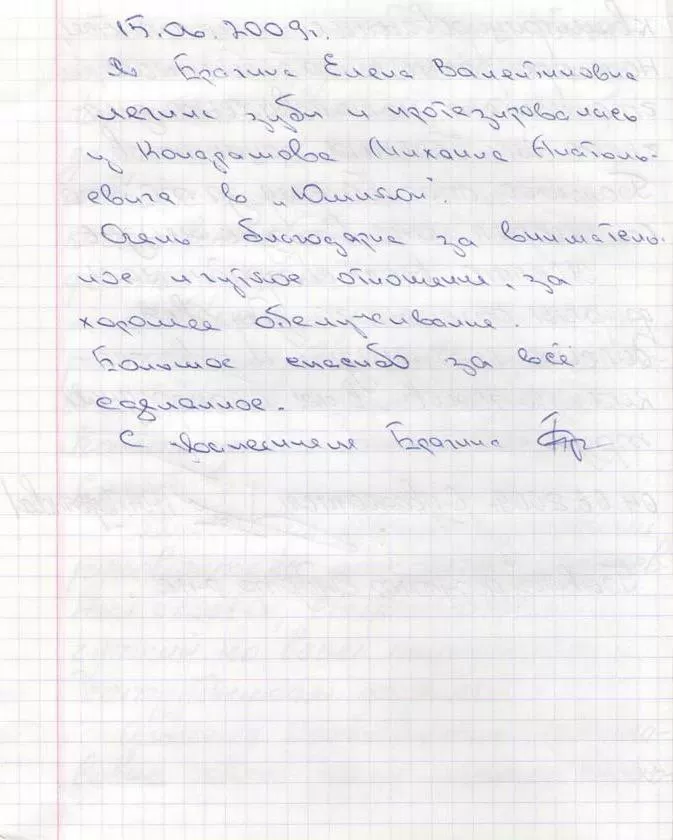 2009г.
Я Брагина Елена Валентиновна
лечила зубы и протезировалась
у Кондрашова Михаила Анатоль-
евича в
Очень благодарна за вниматель-
ное и чуткое отношение, за
хорошее обслуживание.
Большое спасибо за всё
сделанное.
С Брагина